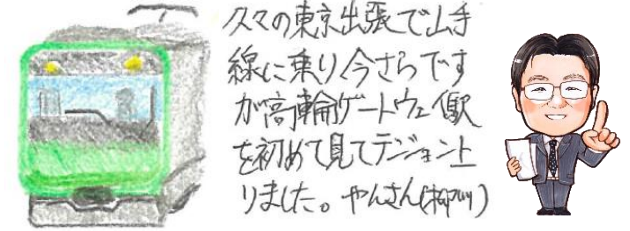 久々の東京出張で山手
線に乗り、今さらです
が高輪ゲートウェイ駅
を初めて見てテンション上
りました。やんさん(柳川)